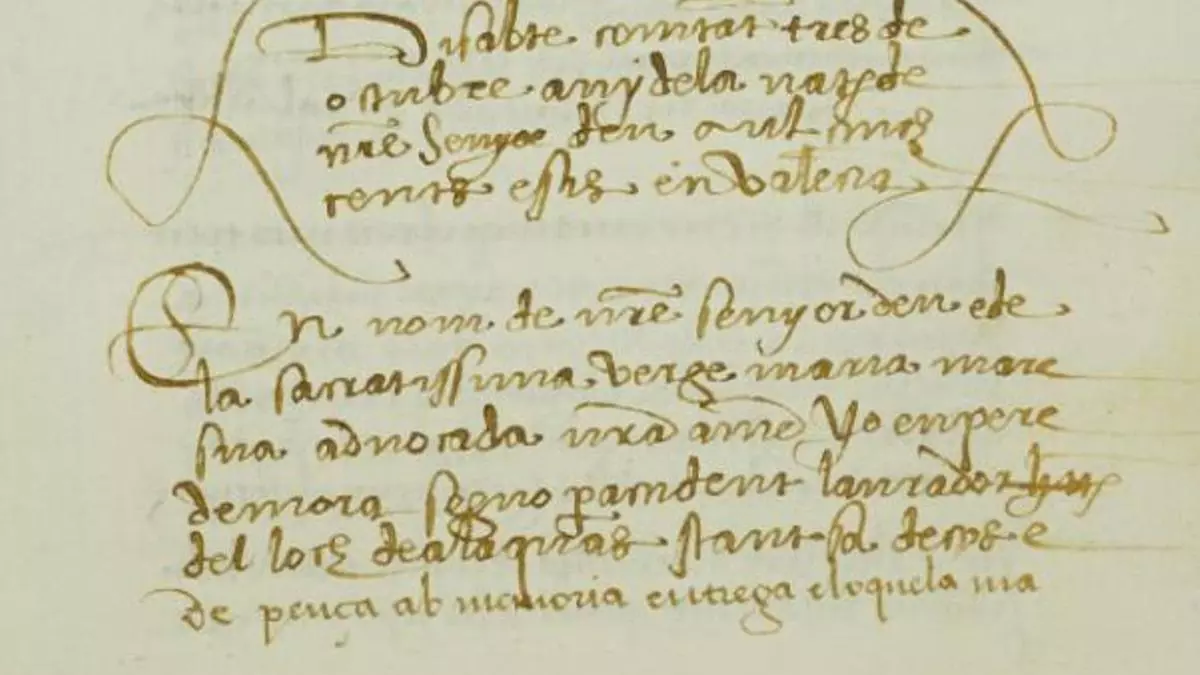 Disabte comtāt tres de
octubre any dela natȝ de
nr̄e Senyor deu m vͭ cincȝ
cents e siȝ en Valēcia
En nom de nr̄e senyor deu e de
la sacratissima verge maria mare
sua aduocada nr̄a amē Yo en pere
demora segno p̄ accident laurador
del loch dealaquas stant sa de cos e
de pença ab memoria entrega eloquela ma